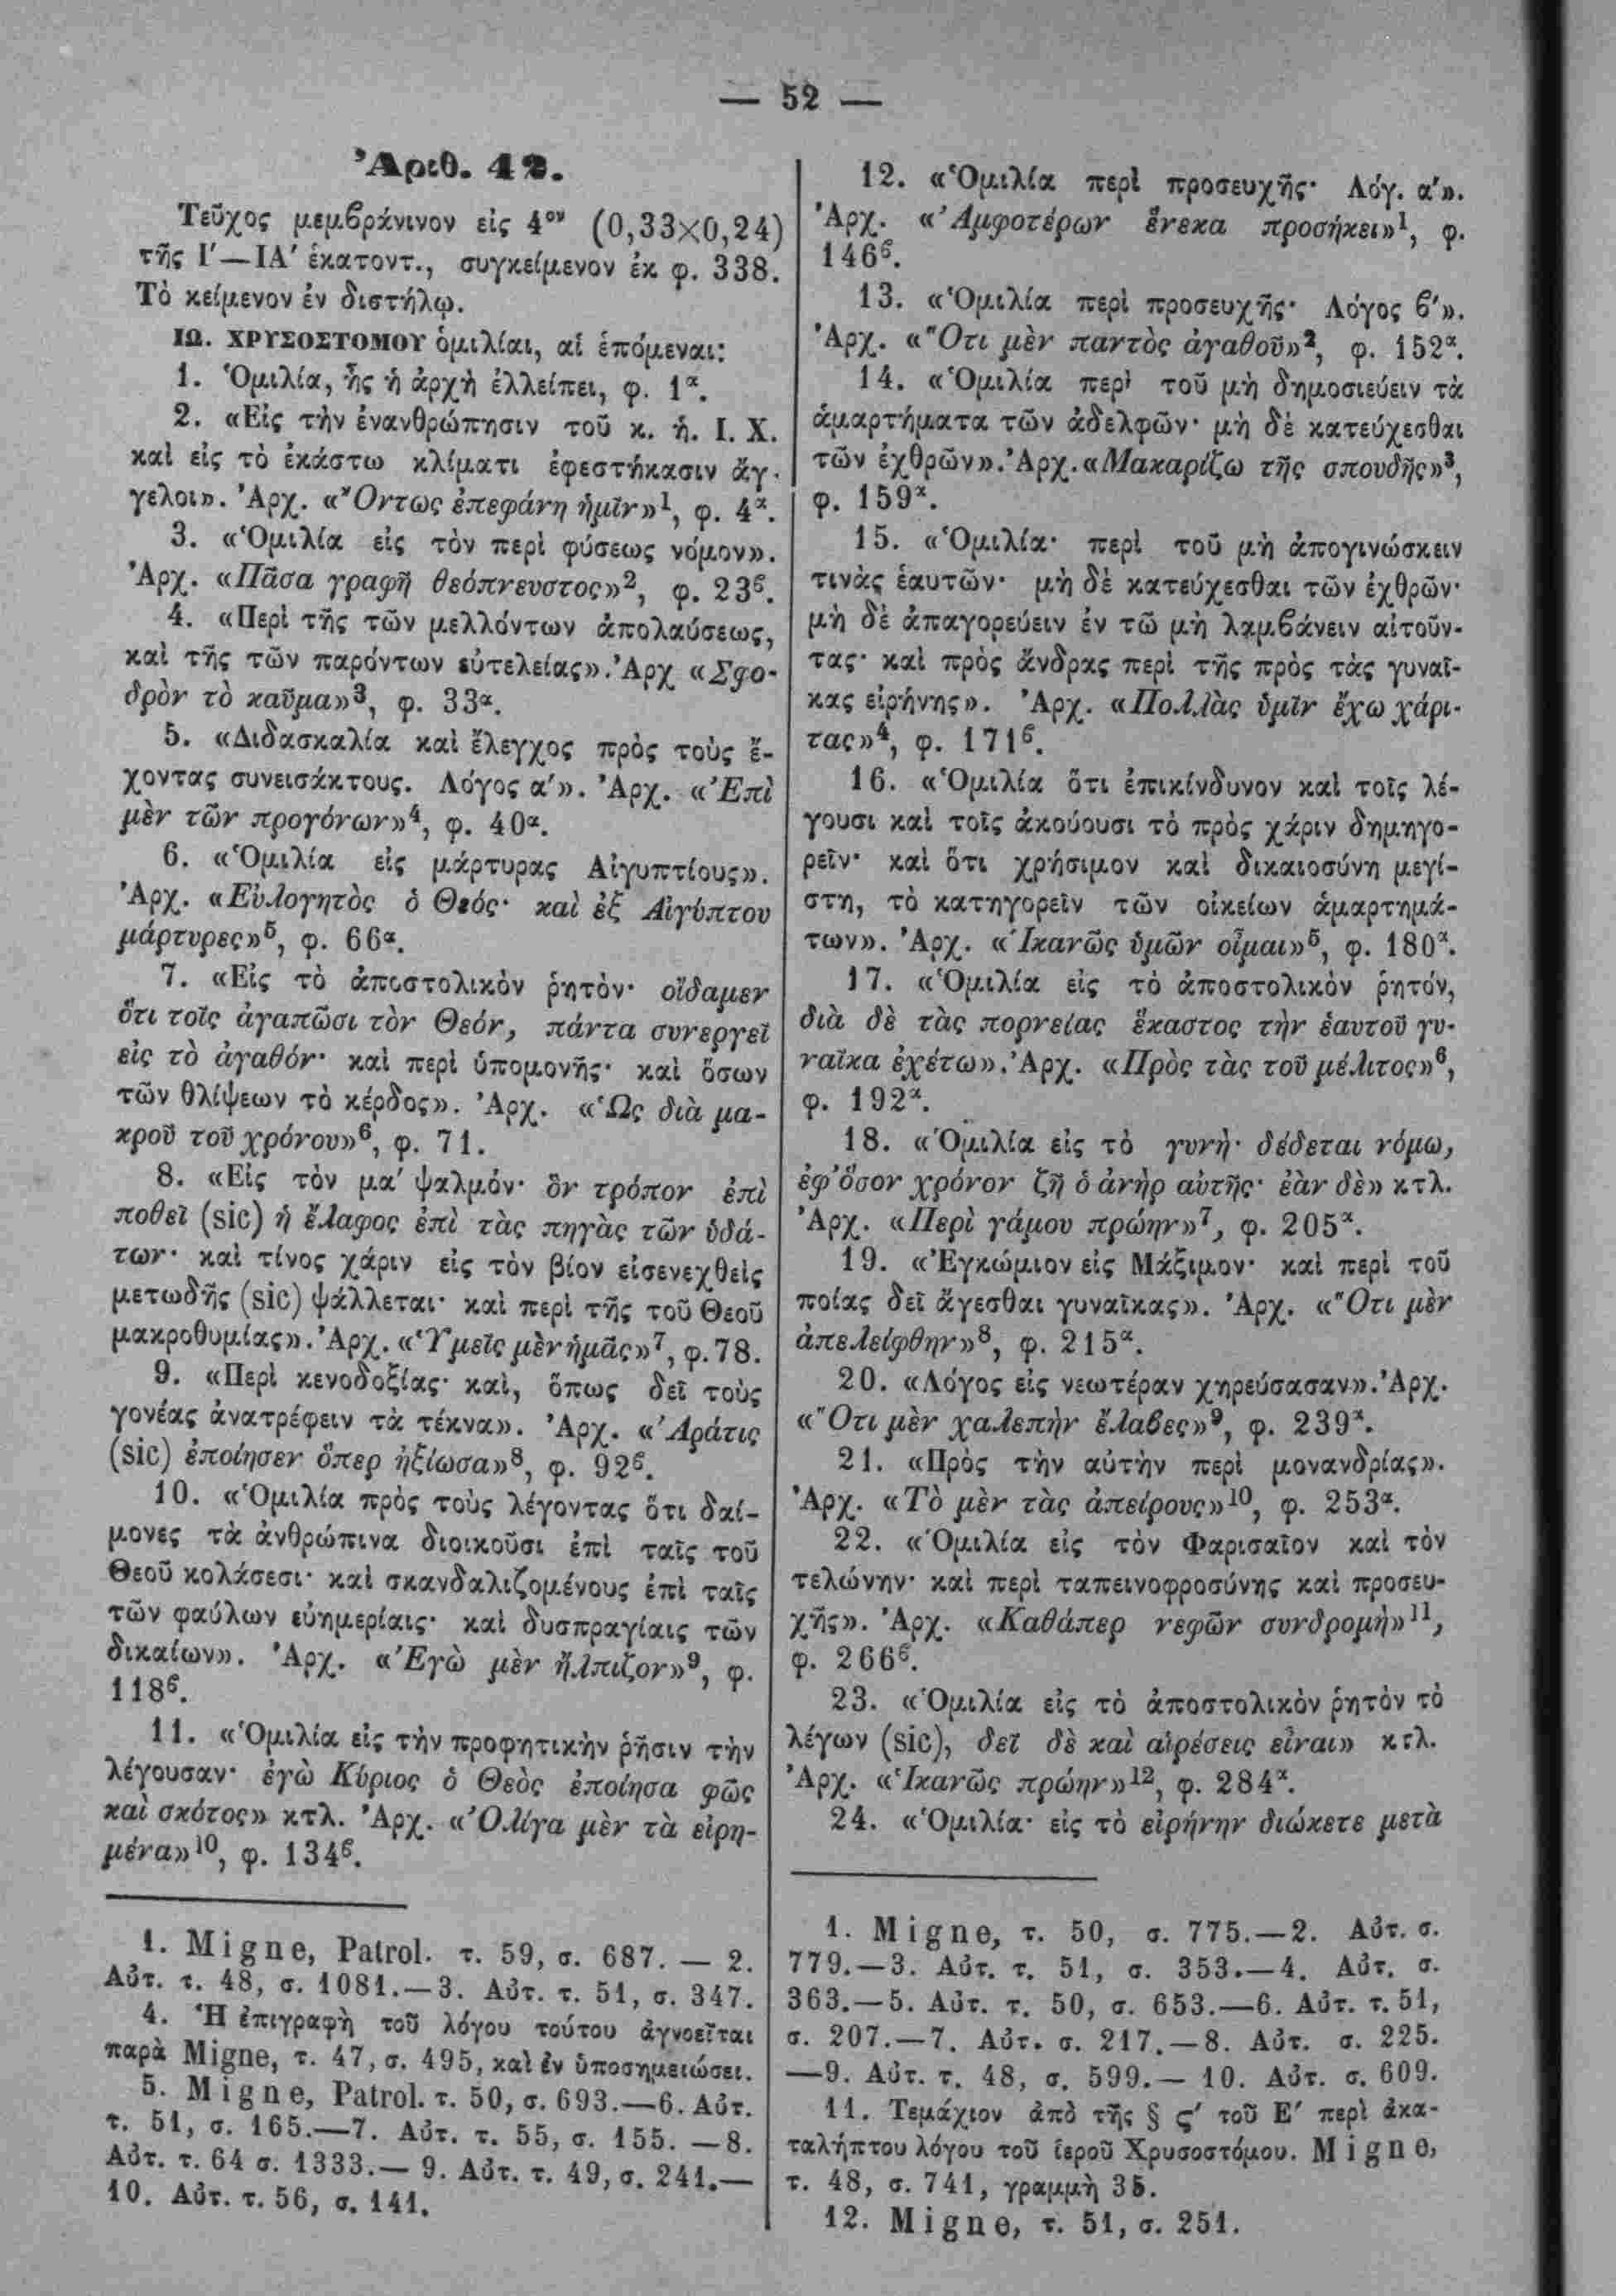 — 52 —
Ἀριθ. 42.
Τεῦχος μεμβράνινον εἰς 4ον (0,33×0,24)
τῆς Ι΄—ΙΑ΄ ἑκατοντ., συγκείμενον ἐκ φ. 338.
Τὸ κείμενον ἐν διστήλῳ.
ΙΩ. ΧΡΥΣΟΣΤΟΜΟΥ ὁμιλίαι, αἱ ἑπόμεναι:
1. Ὁμιλία, ἧς ἡ ἀρχὴ ἐλλείπει, φ. 1α.
2. «Εἰς τὴν ἐνανθρώπησιν τοῦ κ. ἡ. Ι. Χ.
καὶ εἰς τὸ ἑκάστω κλίματι ἐφεστήκασιν ἄγ-
γελοι». Ἀρχ. «Ὄντως ἐπεφάνη ἡμῖν»1, φ. 4α.
3. «Ὁμιλία εἰς τὸν περὶ φύσεως νόμον».
Ἀρχ. «Πᾶσα γραφῆ θεόπνευστος»2, φ. 23β.
4. «Περὶ τῆς τῶν μελλόντων ἀπολαύσεως,
καὶ τῆς τῶν παρόντων εὐτελείας». Ἀρχ «Σφο-
δρὸν τὸ καῦμα»3, φ. 33α.
5. «Διδασκαλία καὶ ἔλεγχος πρὸς τοὺς ἔ-
χοντας συνεισάκτους. Λόγος α΄». Ἀρχ. «Ἐπὶ
μὲν τῶν προγόνων»4, φ. 40α.
6. «Ὁμιλία εἰς μάρτυρας Αἰγυπτίους».
Ἀρχ. «Εὐλογητὸς ὁ Θεός· καὶ ἐξ Αἰγύπτου
μάρτυρες»5, φ. 66α.
7. «Εἰς τὸ ἀποστολικὸν ῥητὸν· οἴδαμεν
ὅτι τοῖς ἀγαπῶσι τὸν Θεόν, πάντα συνεργεῖ
εἰς τὸ ἀγαθόν· καὶ περὶ ὑπομονῆς· καὶ ὅσων
τῶν θλίψεων τὸ κέρδος». Ἀρχ. «Ὡς διὰ μα-
κροῦ τοῦ χρόνου»6, φ. 71.
8. «Εἰς τὸν μα΄ ψαλμόν· ὃν τρόπον ἐπὶ
ποθεῖ (sic) ἡ ἔλαφος ἐπὶ τὰς πηγὰς τῶν ὑδά-
των· καὶ τίνος χάριν εἰς τὸν βίον εἰσενεχθεὶς
μετωδῆς (sic) ψάλλεται· καὶ περὶ τῆς τοῦ Θεοῦ
μακροθυμίας». Ἀρχ. «Ὑμεῖς μὲν ἡμᾶς»7, φ. 78.
9. «Περὶ κενοδοξίας· καὶ, ὅπως δεῖ τοὺς
γονέας ἀνατρέφειν τὰ τέκνα». Ἀρχ. «Ἀράτις
(sic) ἐποίησεν ὅπερ ἠξίωσα»8, φ. 92β.
10. «Ὁμιλία πρὸς τοὺς λέγοντας ὅτι δαί-
μονες τὰ ἀνθρώπινα διοικοῦσι ἐπὶ ταῖς τοῦ
Θεοῦ κολάσεσι· καὶ σκανδαλιζομένους ἐπὶ ταῖς
τῶν φαύλων εὐημερίαις· καὶ δυσπραγίαις τῶν
δικαίων». Ἀρχ. «Ἐγὼ μὲν ἤλπιζον»9, φ.
118β.
11. «Ὁμιλία εἰς τὴν προφητικὴν ῥῆσιν τὴν
λέγουσαν· ἐγὼ Κύριος ὁ Θεὸς ἐποίησα φῶς
καὶ σκότος» κτλ. Ἀρχ. «Ὀλίγα μὲν τὰ εἰρη-
μένα»10, φ. 134β.
1. Migne, Patrol. τ. 59, σ. 687. — 2.
Αὐτ. τ. 48, σ. 1081.—3. Αὐτ. τ. 51, σ. 347.
4. Ἡ ἐπιγραφὴ τοῦ λόγου τούτου ἀγνοεῖται
παρὰ Migne, τ. 47, σ. 495, καὶ ἐν ὑποσημειώσει.
5. Migne, Patrol. τ. 50, σ. 693.—6. Αὐτ.
τ. 51, σ. 165.—7. Αὐτ. τ. 55, σ. 155. —8.
Αὐτ. τ. 64 σ. 1333.— 9. Αὐτ. τ. 49, σ. 241.—
10. Αὐτ. τ. 56, σ. 141.
12. «Ὁμιλία περὶ προσευχῆς· Λόγ. α΄».
Ἀρχ. «Ἀμφοτέρων ἕνεκα προσήκει»1, φ.
146β.
13. «Ὁμιλία περὶ προσευχῆς· Λόγος β΄».
Ἀρχ. «Ὅτι μὲν παντὸς ἀγαθοῦ»2, φ. 152α.
14. «Ὁμιλία περὶ τοῦ μὴ δημοσιεύειν τὰ
ἁμαρτήματα τῶν ἀδελφῶν· μὴ δὲ κατεύχεσθαι
τῶν ἐχθρῶν». Ἀρχ. «Μακαρίζω τῆς σπουδῆς»3,
φ. 159α.
15. «Ὁμιλία· περὶ τοῦ μὴ ἀπογινώσκειν
τινὰς ἑαυτῶν· μὴ δὲ κατεύχεσθαι τῶν ἐχθρῶν·
μὴ δὲ ἀπαγορεύειν ἐν τῶ μὴ λαμβάνειν αἰτοῦν-
τας· καὶ πρὸς ἄνδρας περὶ τῆς πρὸς τὰς γυναῖ-
κας εἰρήνης». Ἀρχ. «Πολλὰς ὑμῖν ἔχω χάρι-
τας»4, φ. 171β.
16. «Ὁμιλία ὅτι ἐπικίνδυνον καὶ τοῖς λέ-
γουσι καὶ τοῖς ἀκούουσι τὸ πρὸς χάριν δημηγο-
ρεῖν· καὶ ὅτι χρήσιμον καὶ δικαιοσύνη μεγί-
στη, τὸ κατηγορεῖν τῶν οἰκείων ἁμαρτημά-
των». Ἀρχ. «Ἱκανῶς ὑμῶν οἶμαι»5, φ. 180α.
17. «Ὁμιλία εἰς τὸ ἀποστολικὸν ῥητόν,
διὰ δὲ τὰς πορνείας ἕκαστος τὴν ἑαυτοῦ γυ-
ναῖκα ἐχέτω». Ἀρχ. «Πρὸς τὰς τοῦ μέλιτος»6,
φ. 192α.
18. «Ὁμιλία εἰς τὸ γυνὴ· δέδεται νόμω,
ἐφ' ὅσον χρόνον ζῆ ὁ ἀνὴρ αὐτῆς· ἐὰν δὲ» κτλ.
Ἀρχ. «Περὶ γάμου πρώην»7, φ. 205α.
19. «Ἐγκώμιον εἰς Μάξιμον· καὶ περὶ τοῦ
ποίας δεῖ ἄγεσθαι γυναῖκας». Ἀρχ. «Ὅτι μὲν
ἀπελείφθην»8, φ. 215α.
20. «Λόγος εἰς νεωτέραν χηρεύσασαν». Ἀρχ.
«Ὅτι μὲν χαλεπὴν ἔλαβες»9, φ. 239α.
21. «Πρὸς τὴν αὐτὴν περὶ μονανδρίας».
Ἀρχ. «Τὸ μὲν τὰς ἀπείρους»10, φ. 253α.
22. «Ὁμιλία εἰς τὸν Φαρισαῖον καὶ τὸν
τελώνην· καὶ περὶ ταπεινοφροσύνης καὶ προσευ-
χῆς». Ἀρχ. «Καθάπερ νεφῶν συνδρομὴ»11,
φ. 266β.
23. «Ὁμιλία εἰς τὸ ἀποστολικὸν ῥητὸν τὸ
λέγων (sic), δεῖ δὲ καὶ αἱρέσεις εἶναι» κτλ.
Ἀρχ. «Ἱκανῶς πρώην»12, φ. 284α.
24. «Ὁμιλία· εἰς τὸ εἰρήνην διώκετε μετὰ
1. Migne, τ. 50, σ. 775.—2. Αὐτ. σ.
779.—3. Αὐτ. τ. 51, σ. 353.—4. Αὐτ. σ.
363.—5. Αὐτ. τ. 50, σ. 653.—6. Αὐτ. τ. 51,
σ. 207.—7. Αὐτ. σ. 217.—8. Αὐτ. σ. 225.
—9. Αὐτ. τ. 48, σ. 599.— 10. Αὐτ. σ. 609.
11. Τεμάχιον ἀπὸ τῆς § ϛ΄ τοῦ Ε΄ περὶ ἀκα-
ταλήπτου λόγου τοῦ ἱεροῦ Χρυσοστόμου. Migne,
τ. 48, σ. 741, γραμμὴ 35.
12. Migne, τ. 51, σ. 251.